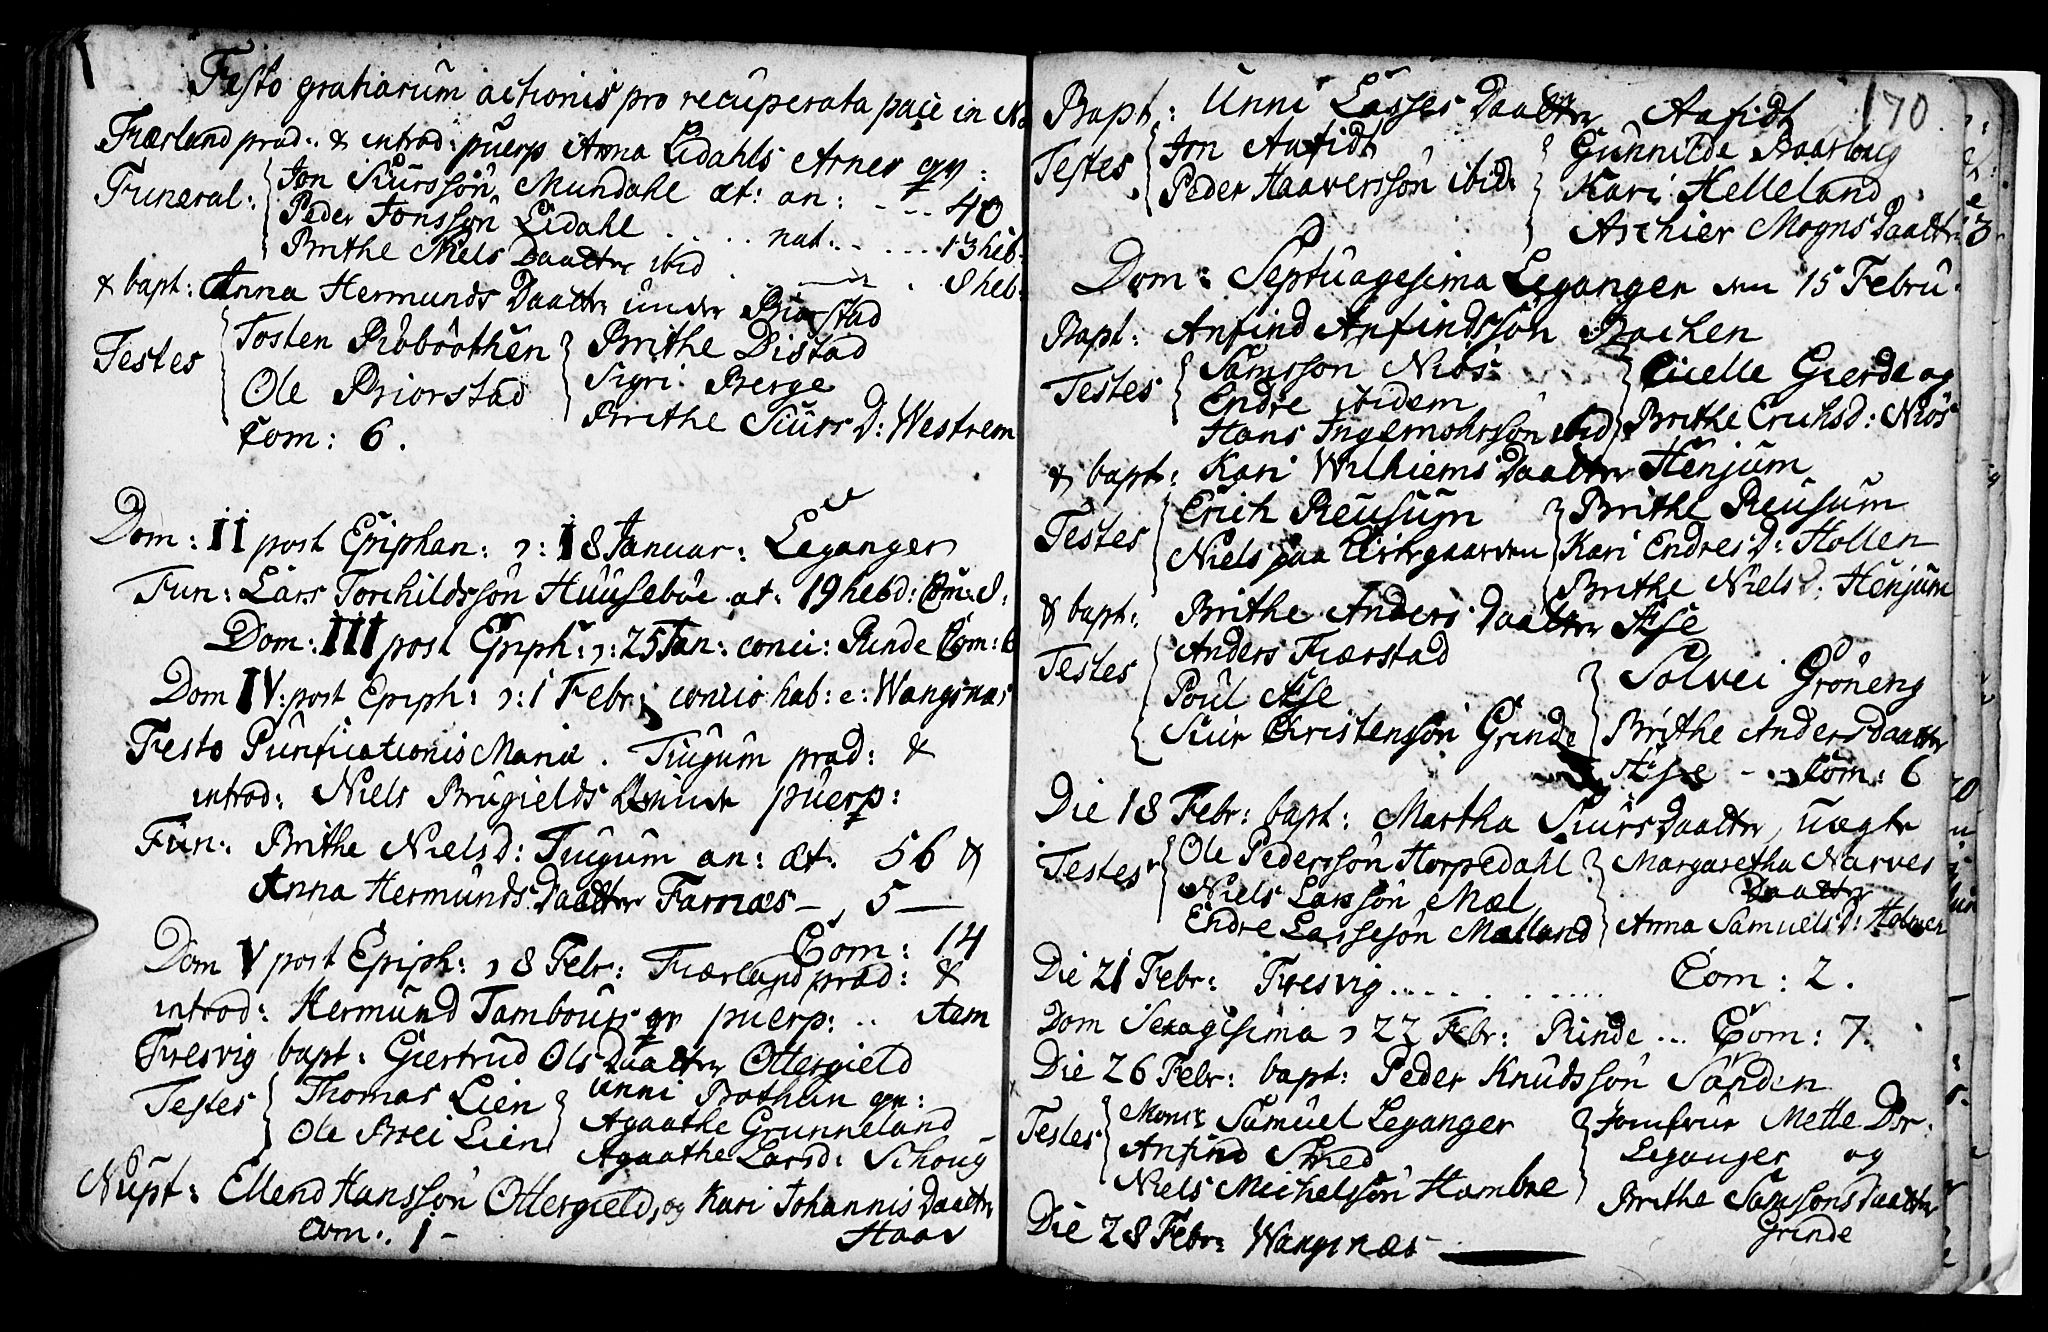 Festo gratiarum actionis pro recuperata pace in
Fiærland præd: & introd: puerp Anna Lidahls Arnes qv:
Funeral: Jon Siurssøn Mundahl æt: an: - - - 40
Peder Jonssøn Lidahl . . . . . nat: - - . . . 13 heb:
Brithe Niels Daatter ibid . . . . 8 heb:
& bapt: Anna Hermunds Daatter under Biorstad
Testes Tosten Rabøothen Brithe Distad
Ole Briorstad Sigri Berge
Com: 6. Brithe Siurs D: Westrem
Dom: II post Epiphan: ɔ: 18 Januar: Leganger
Fun: Lars Torchildssøn Huusebøe æt: 19 hebd: Com: 8:
Dom: III post Epiph: ɔ: 25 Jan: conci: Rinde Com: 6
Dom IV: post Epiph: ɔ: 1 Febr: concio hab: e: Wangsnæs
Festo Purificationis Mariæ. Tiugum præd: &
introd: Niels Brugields qvinde puerp:
Fun: Brithe Niels D: Tiugum an: æt: 56 &
Anna Hermunds Daatter Farnæs - , 5 —
Com: 14
Dom V post Epiph: ɔ 8 Febr: Fiærland præd: &
introd: Hermund Tambours qv puerp: . . Item
Fresvig bapt: Giertrud Ols Daatter Ottergield
Testes Thomas Lien Unni Bothun qv:
Ole Brei Lien Agaathe Grunneland
Agaathe Lars d: Schoug
Nupt: Ellend Hanssøn Ottergield, og Kari Johannis Daatter
Com: 1 - Haas
170
Bapt: Unni Lasses Daatter Aafidt
Testes Jon Aafidt Gunnilde Baarloug
Peder Haaverssøn ibid: Kari Helleland
Aschier Mogns Daatter
Dom: Septuagesima Leganger den 15 Febru
Bapt: Anfind Anfindssøn Bachen
Testes Samsson Niøs Cicelle Gierde og
Endre ibidem Brithe Erichs d: Niøs
Hans Ingemohrsøn ibid
& bapt: Kari Wilhiems Daatter Henjum
Testes Erich Reusum Brithe Reusum
Niels paa Kirkegaarden Kari Endres D: Hollen
Brithe Niels d: Henjum
& bapt: Brithe Anders Daatter Ase
Testes Anders Fiærstad Solvei Grøneng
Poul Ase Brithe Anders Daatter
Siur Christensøn Grinde Ase - - Com: 6
Die 18 Febr: bapt: Martha Siurs Daatter, uægte
Testes Ole Pederssøn Horpedahl Margaretha Narves
Niels Larssøn Mæl Daatter
Endre Lassesøn Mælland Anna Samuels D: Holmen
Die 21 Febr: Fresvig . . . . . . . . Com: 2.
Dom Sexagesima ɔ 22 Febr: Rinde . . . Com: 7.
Die 26 Febr: bapt: Peder Knudssøn Sanden
Testes Monsr Samuel Leganger Jomfrue Mette Dor.
Anfind Skred Leganger og
Niels Michelssøn Hambre Brithe Samsons Daatter
Die 28 Febr: Wangsnæs Grinde